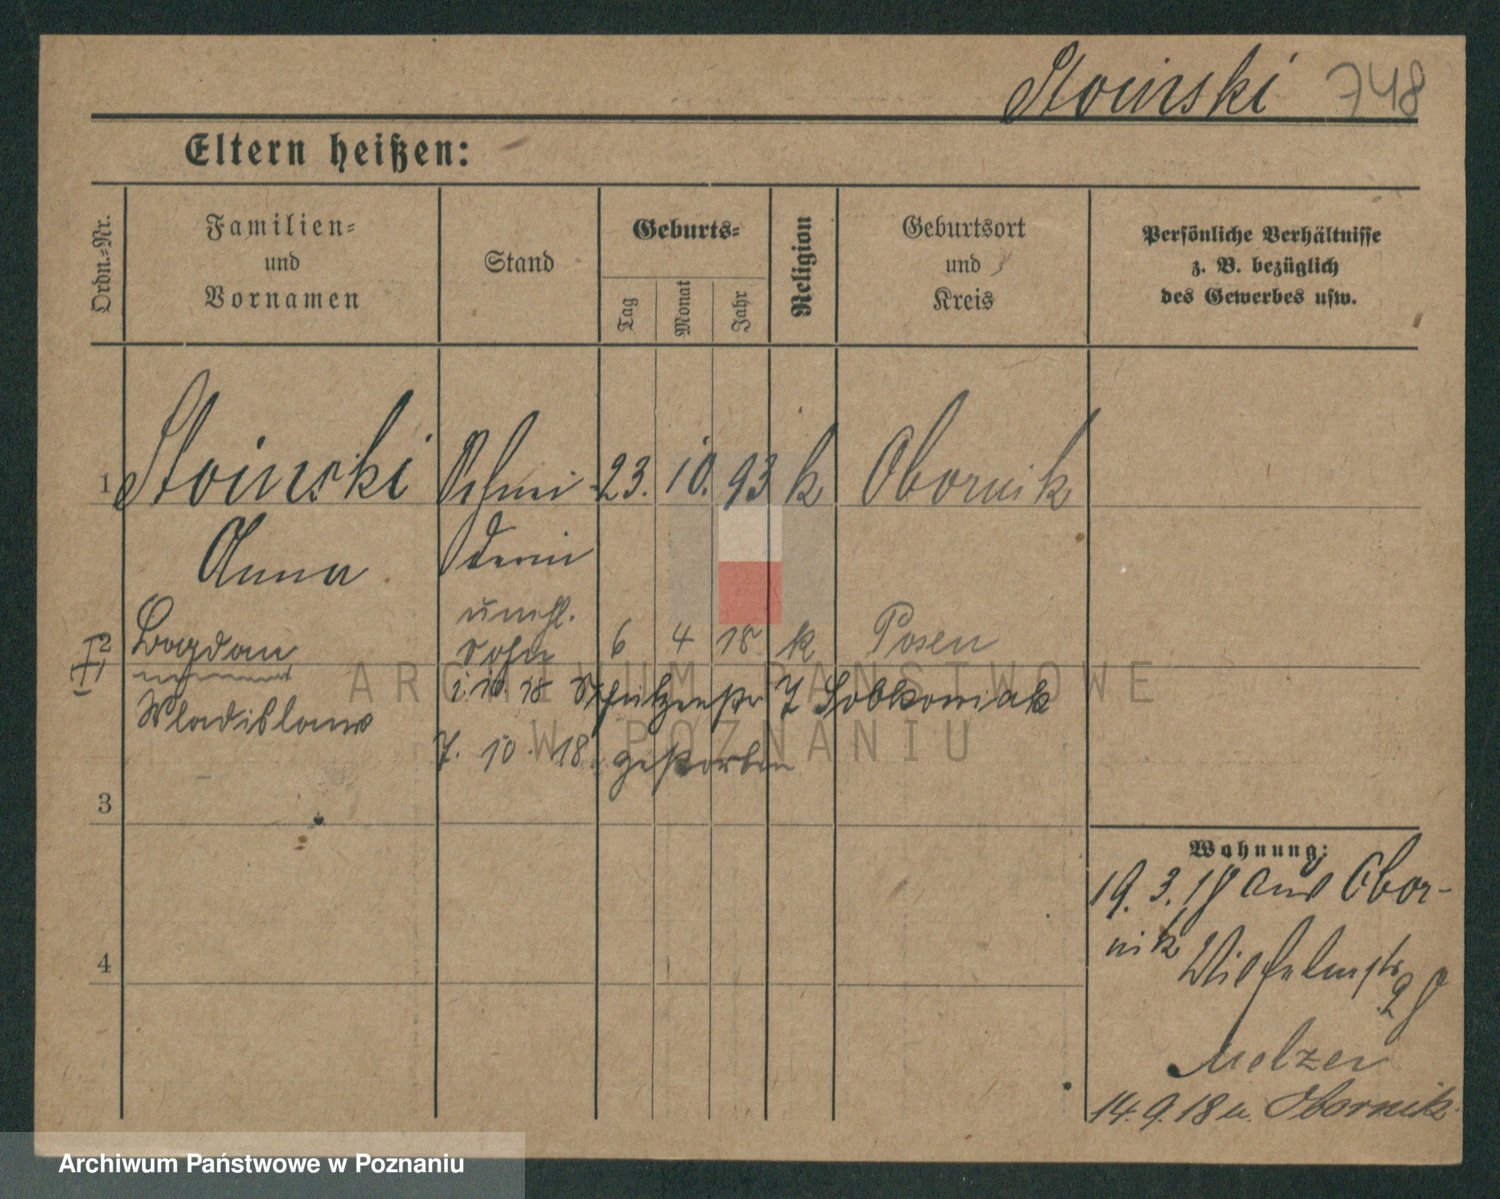 Stoinski 748
Eltern heißen:
Ordn.=Nr.
Familien=
und
Vornamen
Stand
Geburts=
Tag
Monat
Jahr
Religion
Geburtsort
und
Kreis
Persönliche Verhältnisse
z. B. bezüglich
des Gewerbes usw.
1 Stoinski Schnei- 23. 10. 93 k Obornik
Anna derin
unehl.
2 Bogdan Sohn 6 4 18 k Posen
Wladislaus
10. 18 Schützenstr 7 Sobkowiak
7. 10. 18. gestorben
3
4
Wohnung:
19. 3. 18 aus Obor-
nik Wilhelmstr
28
Melzer
14. 9. 18 n. Obornik
ARCHIWUM PAŃSTWOWE
W POZNANIU
Archiwum Państwowe w Poznaniu